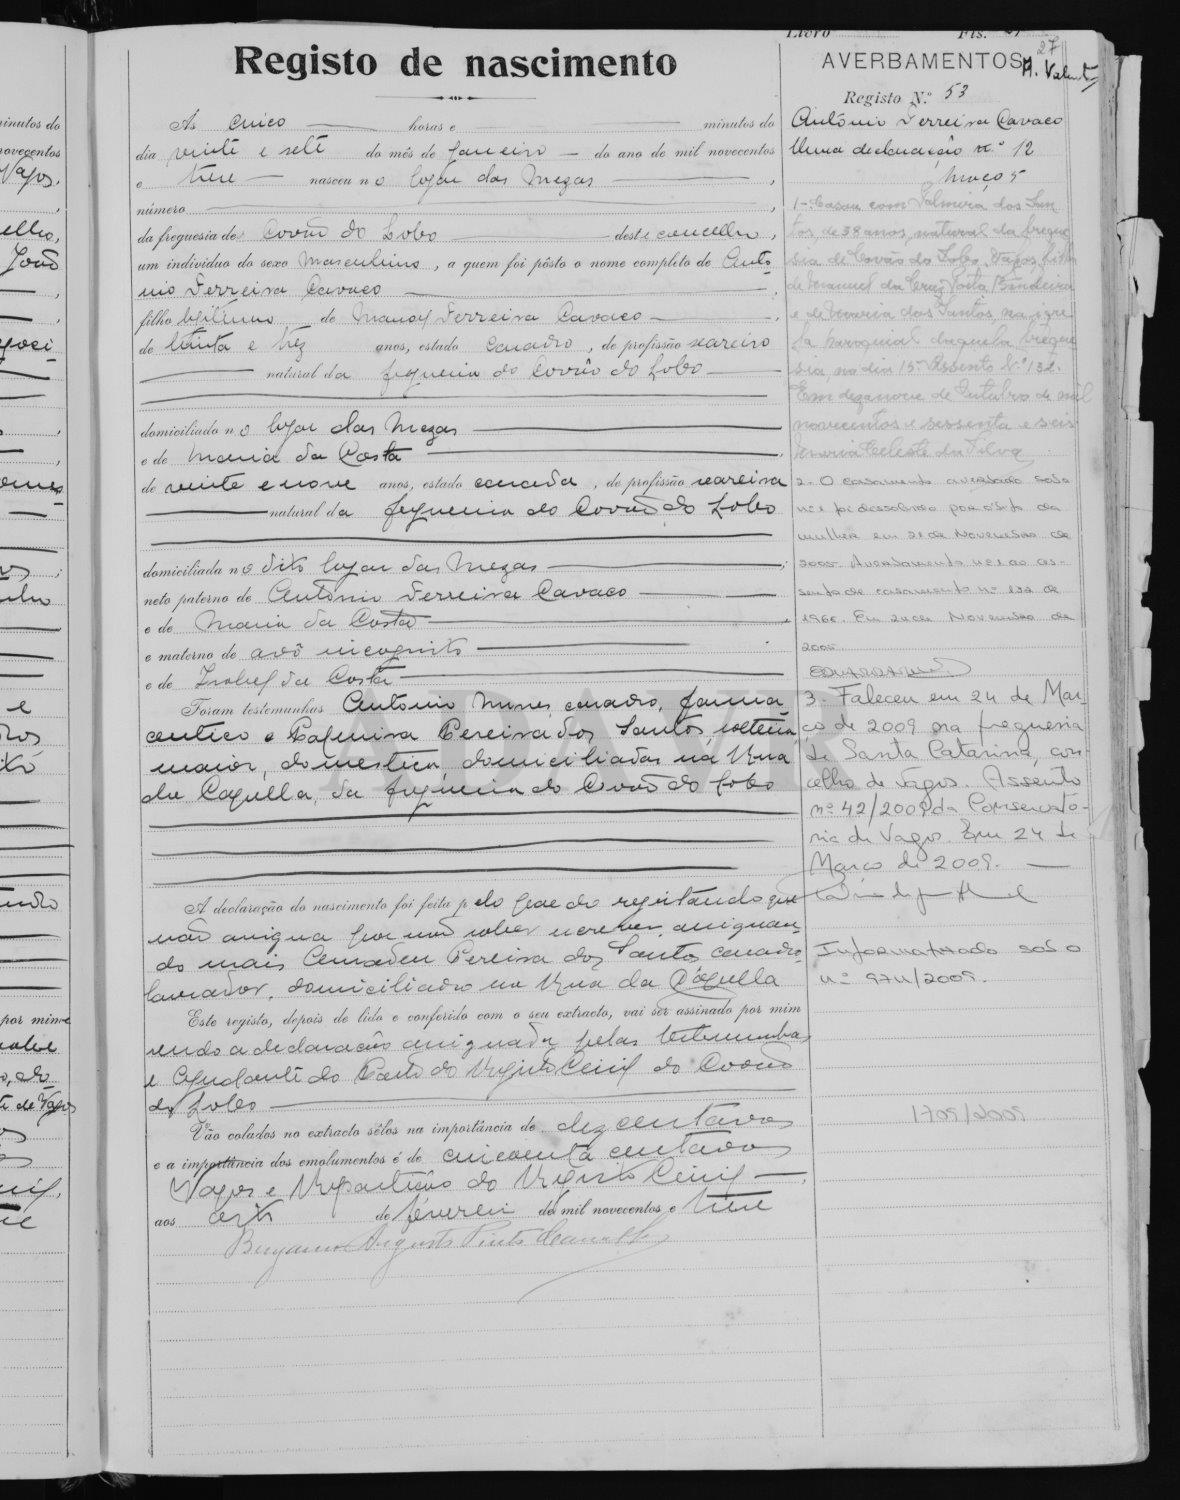 Livro Fls. 27
27
A. Valente
Registo de nascimento
As cinco horas e minutos do
dia vinte e sete do mês de Janeiro do ano de mil novecentos
e treze nasceu no logar das Mezas ,
número ,
da freguesia de Covão do Lobo deste concelho ,
um individuo do sexo masculino , a quem foi pôsto o nome completo de Anto-
nio Ferreira Cavaco ,
filho legitimo de Manoel Ferreira Cavaco ,
de trinta e trez anos, estado casado , de profissão seareiro
natural da freguesia do Covão do Lobo
domiciliado no logar das Mezas
e de Maria da Costa ,
de vinte e nove anos, estado casada , de profissão seareira
natural da freguesia do Covão do Lobo
domiciliada no dito logar das Mezas ;
neto paterno de Antonio Ferreira Cavaco
e de Maria da Costa ,
e materno de avô incognito
e de Izabel da Costa
Foram testemunhas Antonio Nunes, casado, farma-
ceutico e Pereira dos Santos, solteira
maior, domestica, domiciliadas na Rua
da Capella, da freguesia do Covão do Lobo
A declaração do nascimento foi feita pelo pae do registando que
não assigna por não saber escrever, assignan-
do mais Pereira dos Santos casado,
lavrador, domiciliado na Rua da Capella
Este registo, depois de lido e conferido com o seu extracto, vai ser assinado por mim
sendo a declaração assignada pelas testemunhas
e Ajudante do Posto do Registo Civil do Covão
do Lobo
Vão colados no extracto sêlos na importância de dez centavos
e a importância dos emolumentos é de cincoenta centavos
Vagos e Repartição do Registo Civil ,
aos oito de fevereiro de mil novecentos e treze
Augusto Pinto
AVERBAMENTOS
Registo N.º 53
António Ferreira Cavaco
Uma declaração nº 12
Maço 5
1-Casou com Palmira dos San-
tos, de 38 anos, natural da fregue-
sia de Covão do Lobo, Vagos, filha
de Manuel da Cruz Costa Bandeira
e de Maria dos Santos, na igre-
ja paroquial daquela fregue-
sia, no dia 15. Assento Nº 132.
Em dezanove de Outubro de mil
novecentos e sessenta e seis
Maria Celeste da Silva
2- O casamento averbado sob o
nº 1 foi dissolvido por óbito da
mulher em de Novembro de
2005. Averbamento nº 1 ao as-
sento de casamento nº 132 de
1966. Em 24 de Novembro de
2005
3. Faleceu em 24 de Mar-
ço de 2009 na freguesia
de Santa Catarina, con-
celho de Vagos. Assento
nº 42/2009 da Conservató-
ria de Vagos. Em 24 de
Março de 2009.
Informatizado sob o
nº 974/2009.
1709/2009
ADAVR